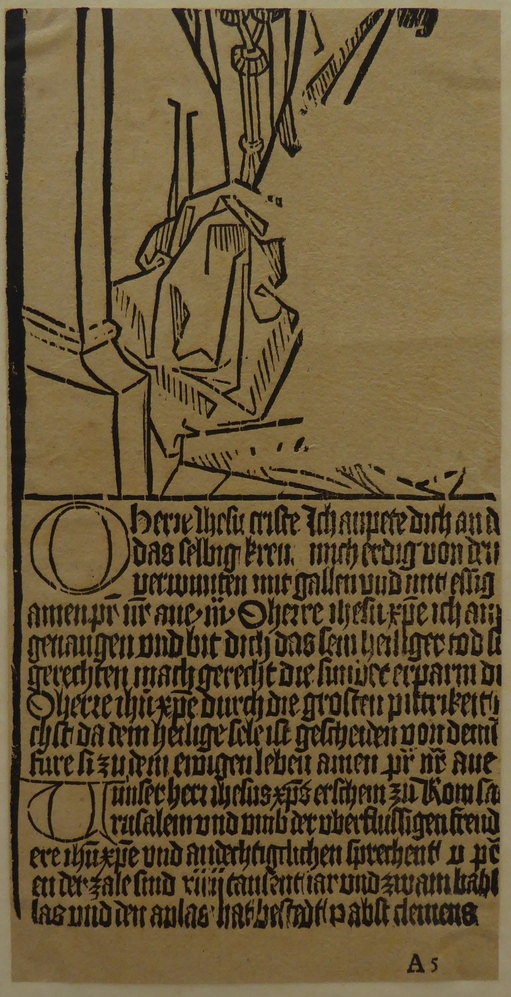 O herre ihesu criste Ich anpete dich an d
das selbig kreu. mich erdig von den
verwunten mit gallen vnd mit essig
amen pr̄ nr̄ aue m̄ O herre ihesu xp̄e ich an
genaugen vnd bit dich das sein heiliger tod s
gerechten mach gerecht die sunder erparm di
O herre ihū xp̄e durch die grosten pittrikeit
chst da dein heilige sele ist gescheiden von deinē
fure si zu dem ewigen leben amen pr̄ nr̄ aue
unser herr ihesus xp̄s erschein zu Rom sa
rusalem vnd vmb der vberflussigen freud
ere ihū xp̄e vnd andechtigclichen sprechent v pr̄
en der zale sind xiiij tausent iar vnd zwai
las vnd den aplas hat bestedt pabst clemens
A 5